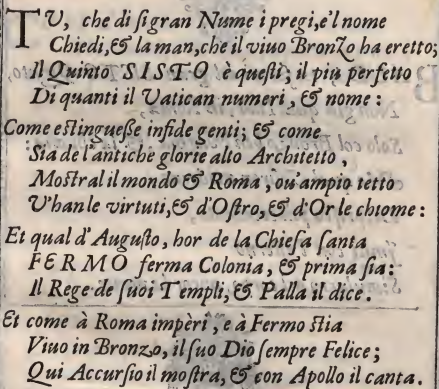 TU, che di ſigran Nume i pregi,e'l nome
Chiedi,& la man,che il viuo BronZo ha eretto;
Il Quinto SISTO è queſti; il piu perfetto
Di quanti il Vatican numeri, & nome:
Come eſtingueſse infide genti; & come
Sia de l'antiche glorie alto Architetto,
Moſtral il mondo & Roma; ou'ampio tetto
V'han le virtuti,& d'Oſtro,& d'Or le chiome:
Et qual d'Auguſto, hor de la Chieſa ſanta
FERMO ferma Colonia, & prima ſia:
Il Rege de ſuoi Templi, & Palla il dice.
Et come à Roma impèri, e à Fermo ſtia
Viuo in Bronzo, il ſuo Dio ſempre Felice;
Qui Accurſio il moſtra, & con Apollo il canta.